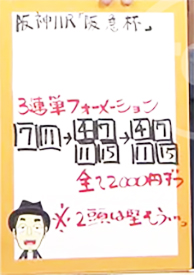 阪神11R「阪急杯」
3連単フォーメーション
7 11→4 7 11 15→4 7 11 15
全て2000円ずつ
※2頭は堅そう…。